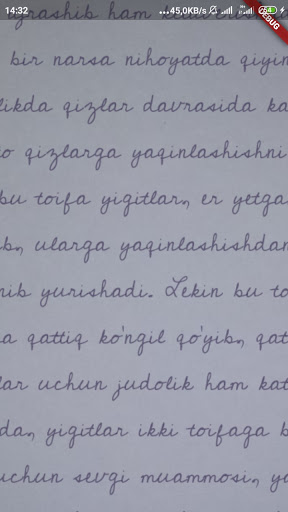 14:32 ...45,0KB/s
DEBUG
ajrashib ham
bir narsa nihoyatda qiyin
likda qizlar davrasida ka
o qizlarga yaqinlashishni
bu toifa yigitlar, er yetga
b, ularga yaqinlashishdan
nib yurishadi. Lekin bu to
a qattiq ko'ngil qo'yib, qat
lar uchun judolik ham kat
da, yigitlar ikki toifaga b
uchun sevgi muammosi, ya